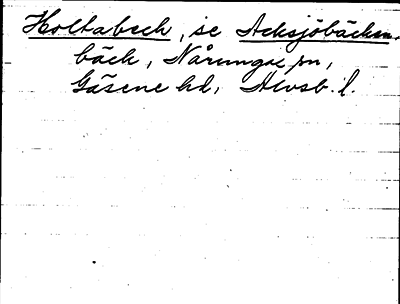 Holtabeck, se Acksjöbäcken.
bäck, Nårunga sn,
Gäsene hd, Älvsb. l.